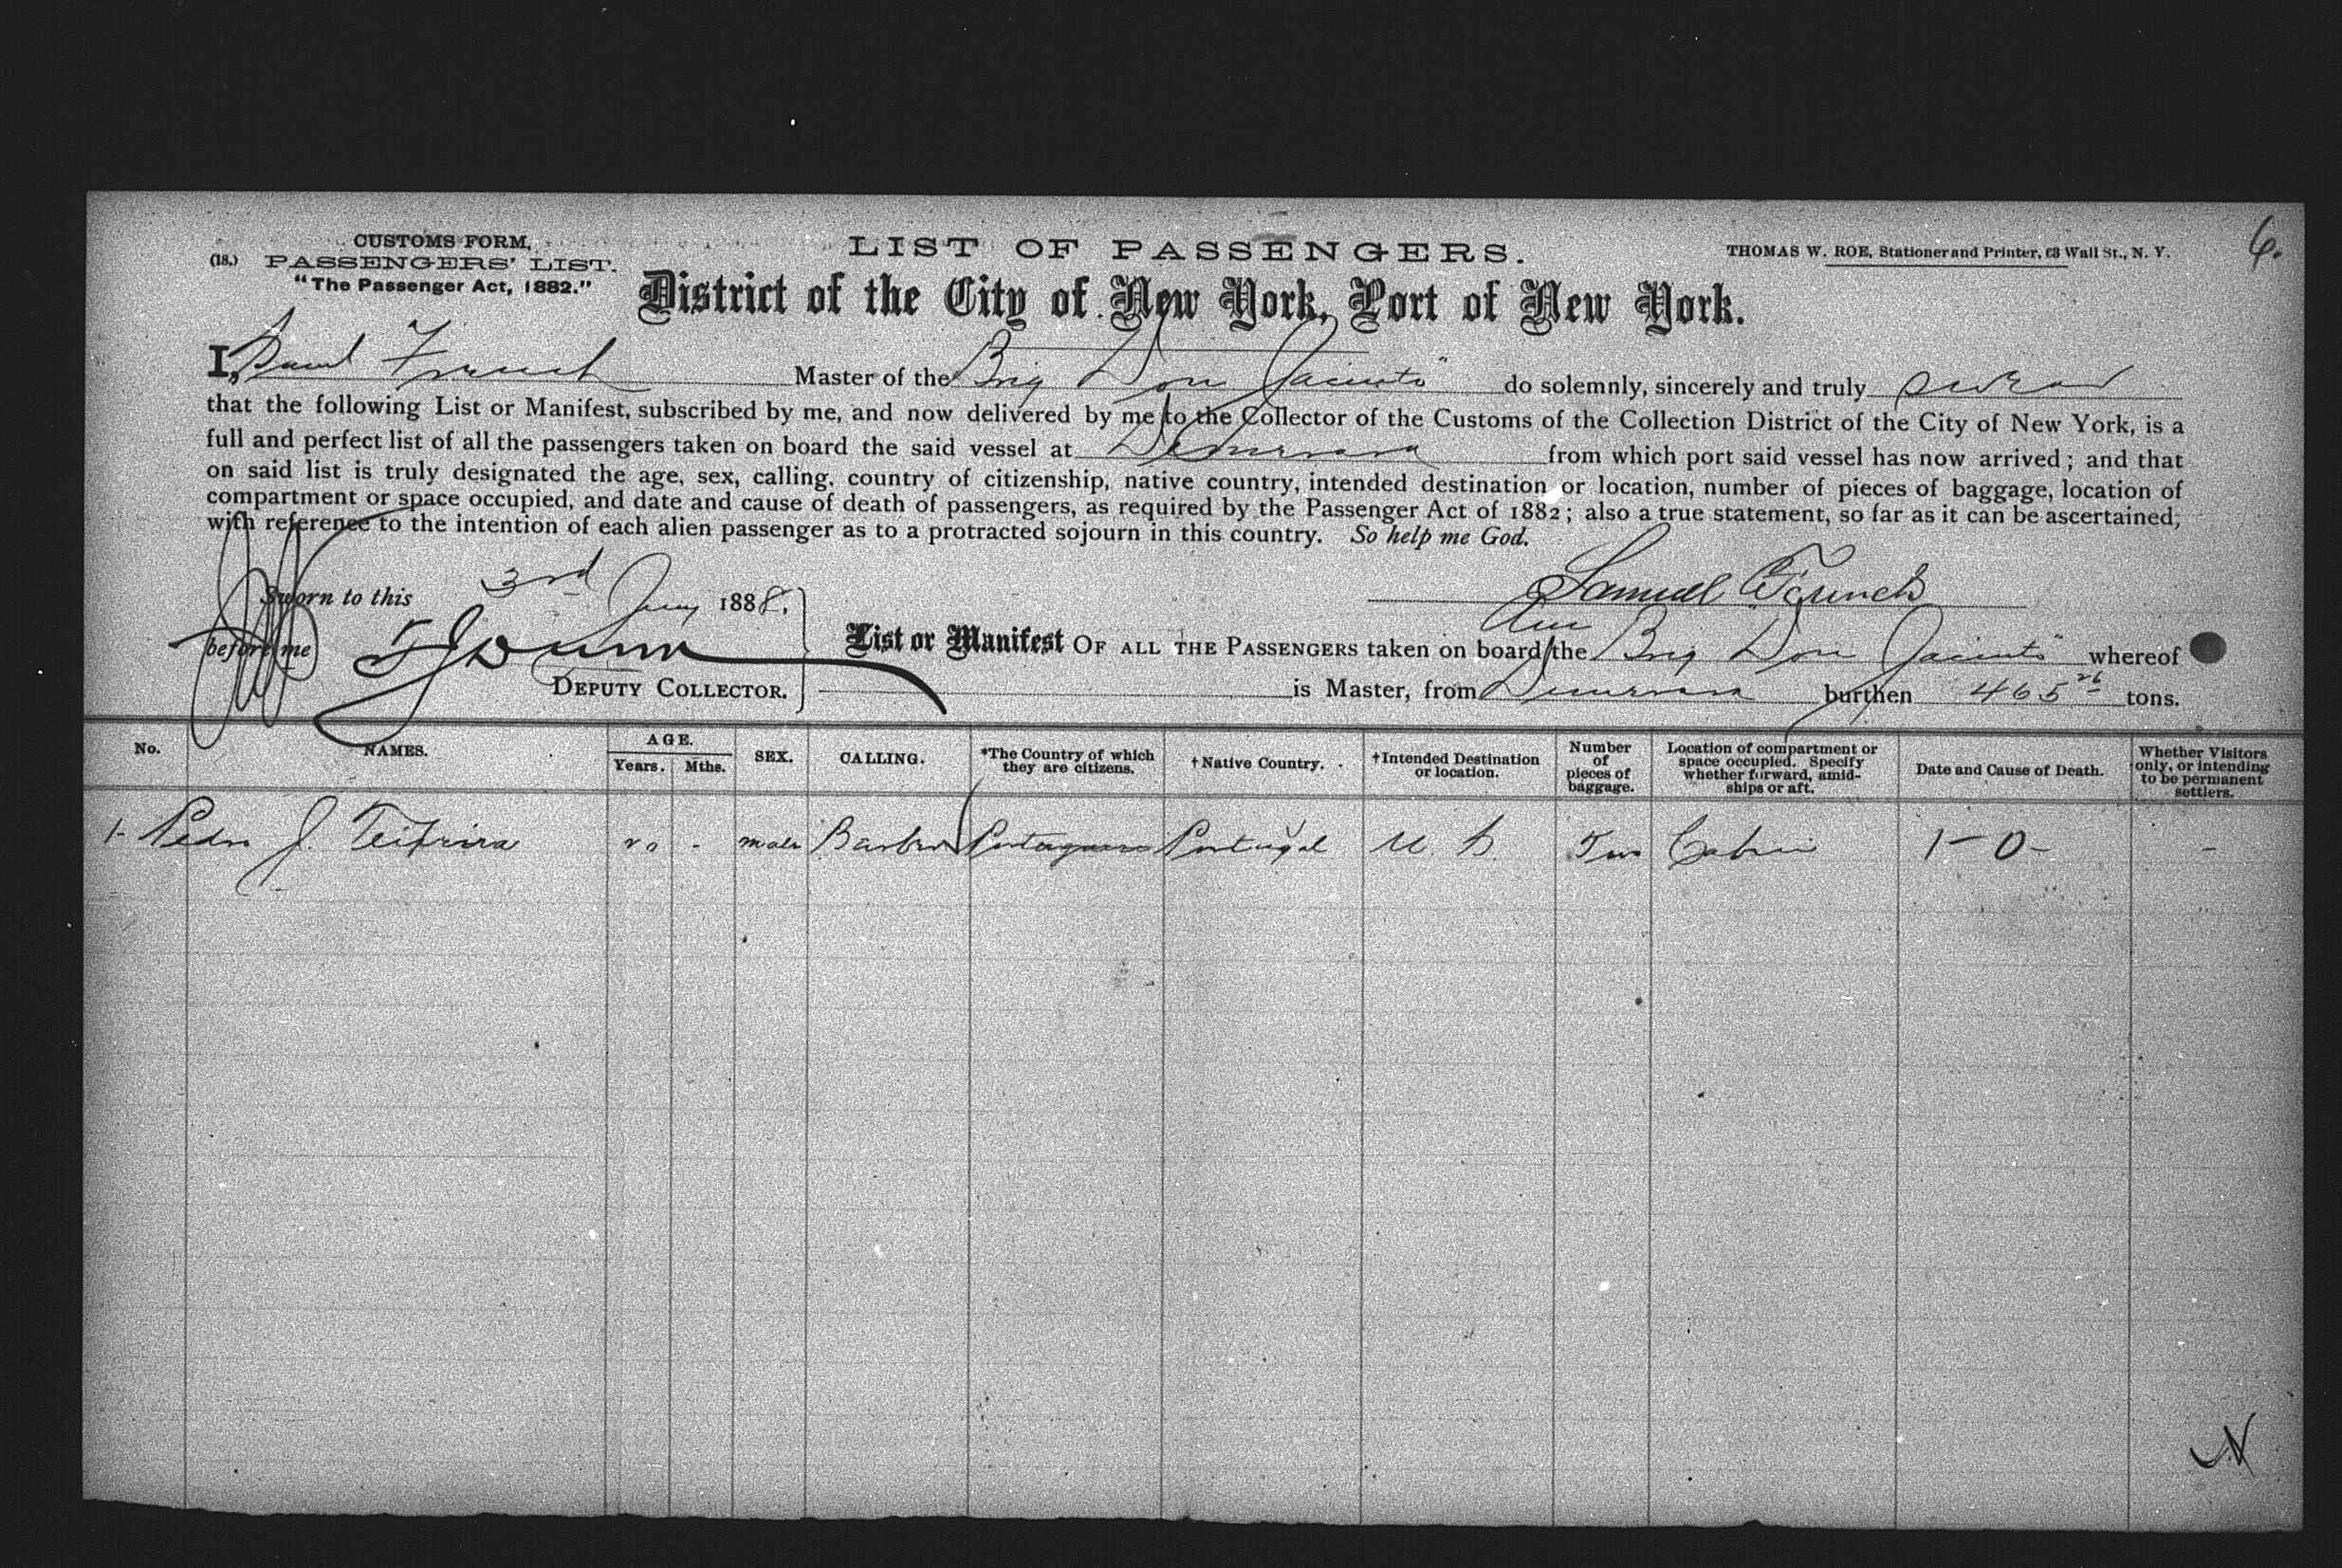 6.
CUSTOMS FORM,
(18.) PASSENGERS' LIST.
"The Passenger Act, 1882."
LIST OF PASSENGERS.
THOMAS W. ROE, Stationer and Printer, 63 Wall St., N. Y.
District of the City of New York, Port of New York.
I, Saml French Master of the Brig "Don Jacinto" do solemnly, sincerely and truly swear
that the following List or Manifest, subscribed by me, and now delivered by me to the Collector of the Customs of the Collection District of the City of New York, is a
full and perfect list of all the passengers taken on board the said vessel at Demerara from which port said vessel has now arrived; and that
on said list is truly designated the age, sex, calling, country of citizenship, native country, intended destination or location, number of pieces of baggage, location of
compartment or space occupied, and date and cause of death of passengers, as required by the Passenger Act of 1882; also a true statement, so far as it can be ascertained,
with reference to the intention of each alien passenger as to a protracted sojourn in this country. So help me God.
Sworn to this 3rd 1888.
Samuel French
before me
DEPUTY COLLECTOR.
List or Manifest OF ALL THE PASSENGERS taken on board the Am Brig "Don Jacinto" whereof
is Master, from Demerara burthen 465 26 tons.
No. NAMES. AGE. Years. Mths. SEX. CALLING. *The Country of which they are citizens. †Native Country. †Intended Destination or location. Number of pieces of baggage. Location of compartment or space occupied. Specify whether forward, amidships or aft. Date and Cause of Death. Whether Visitors only, or intending to be permanent settlers.
1- Pedro J. Teixeira 20 - male Barber Portuguese Portugal U. S. Two Cabin 1-0- -
N